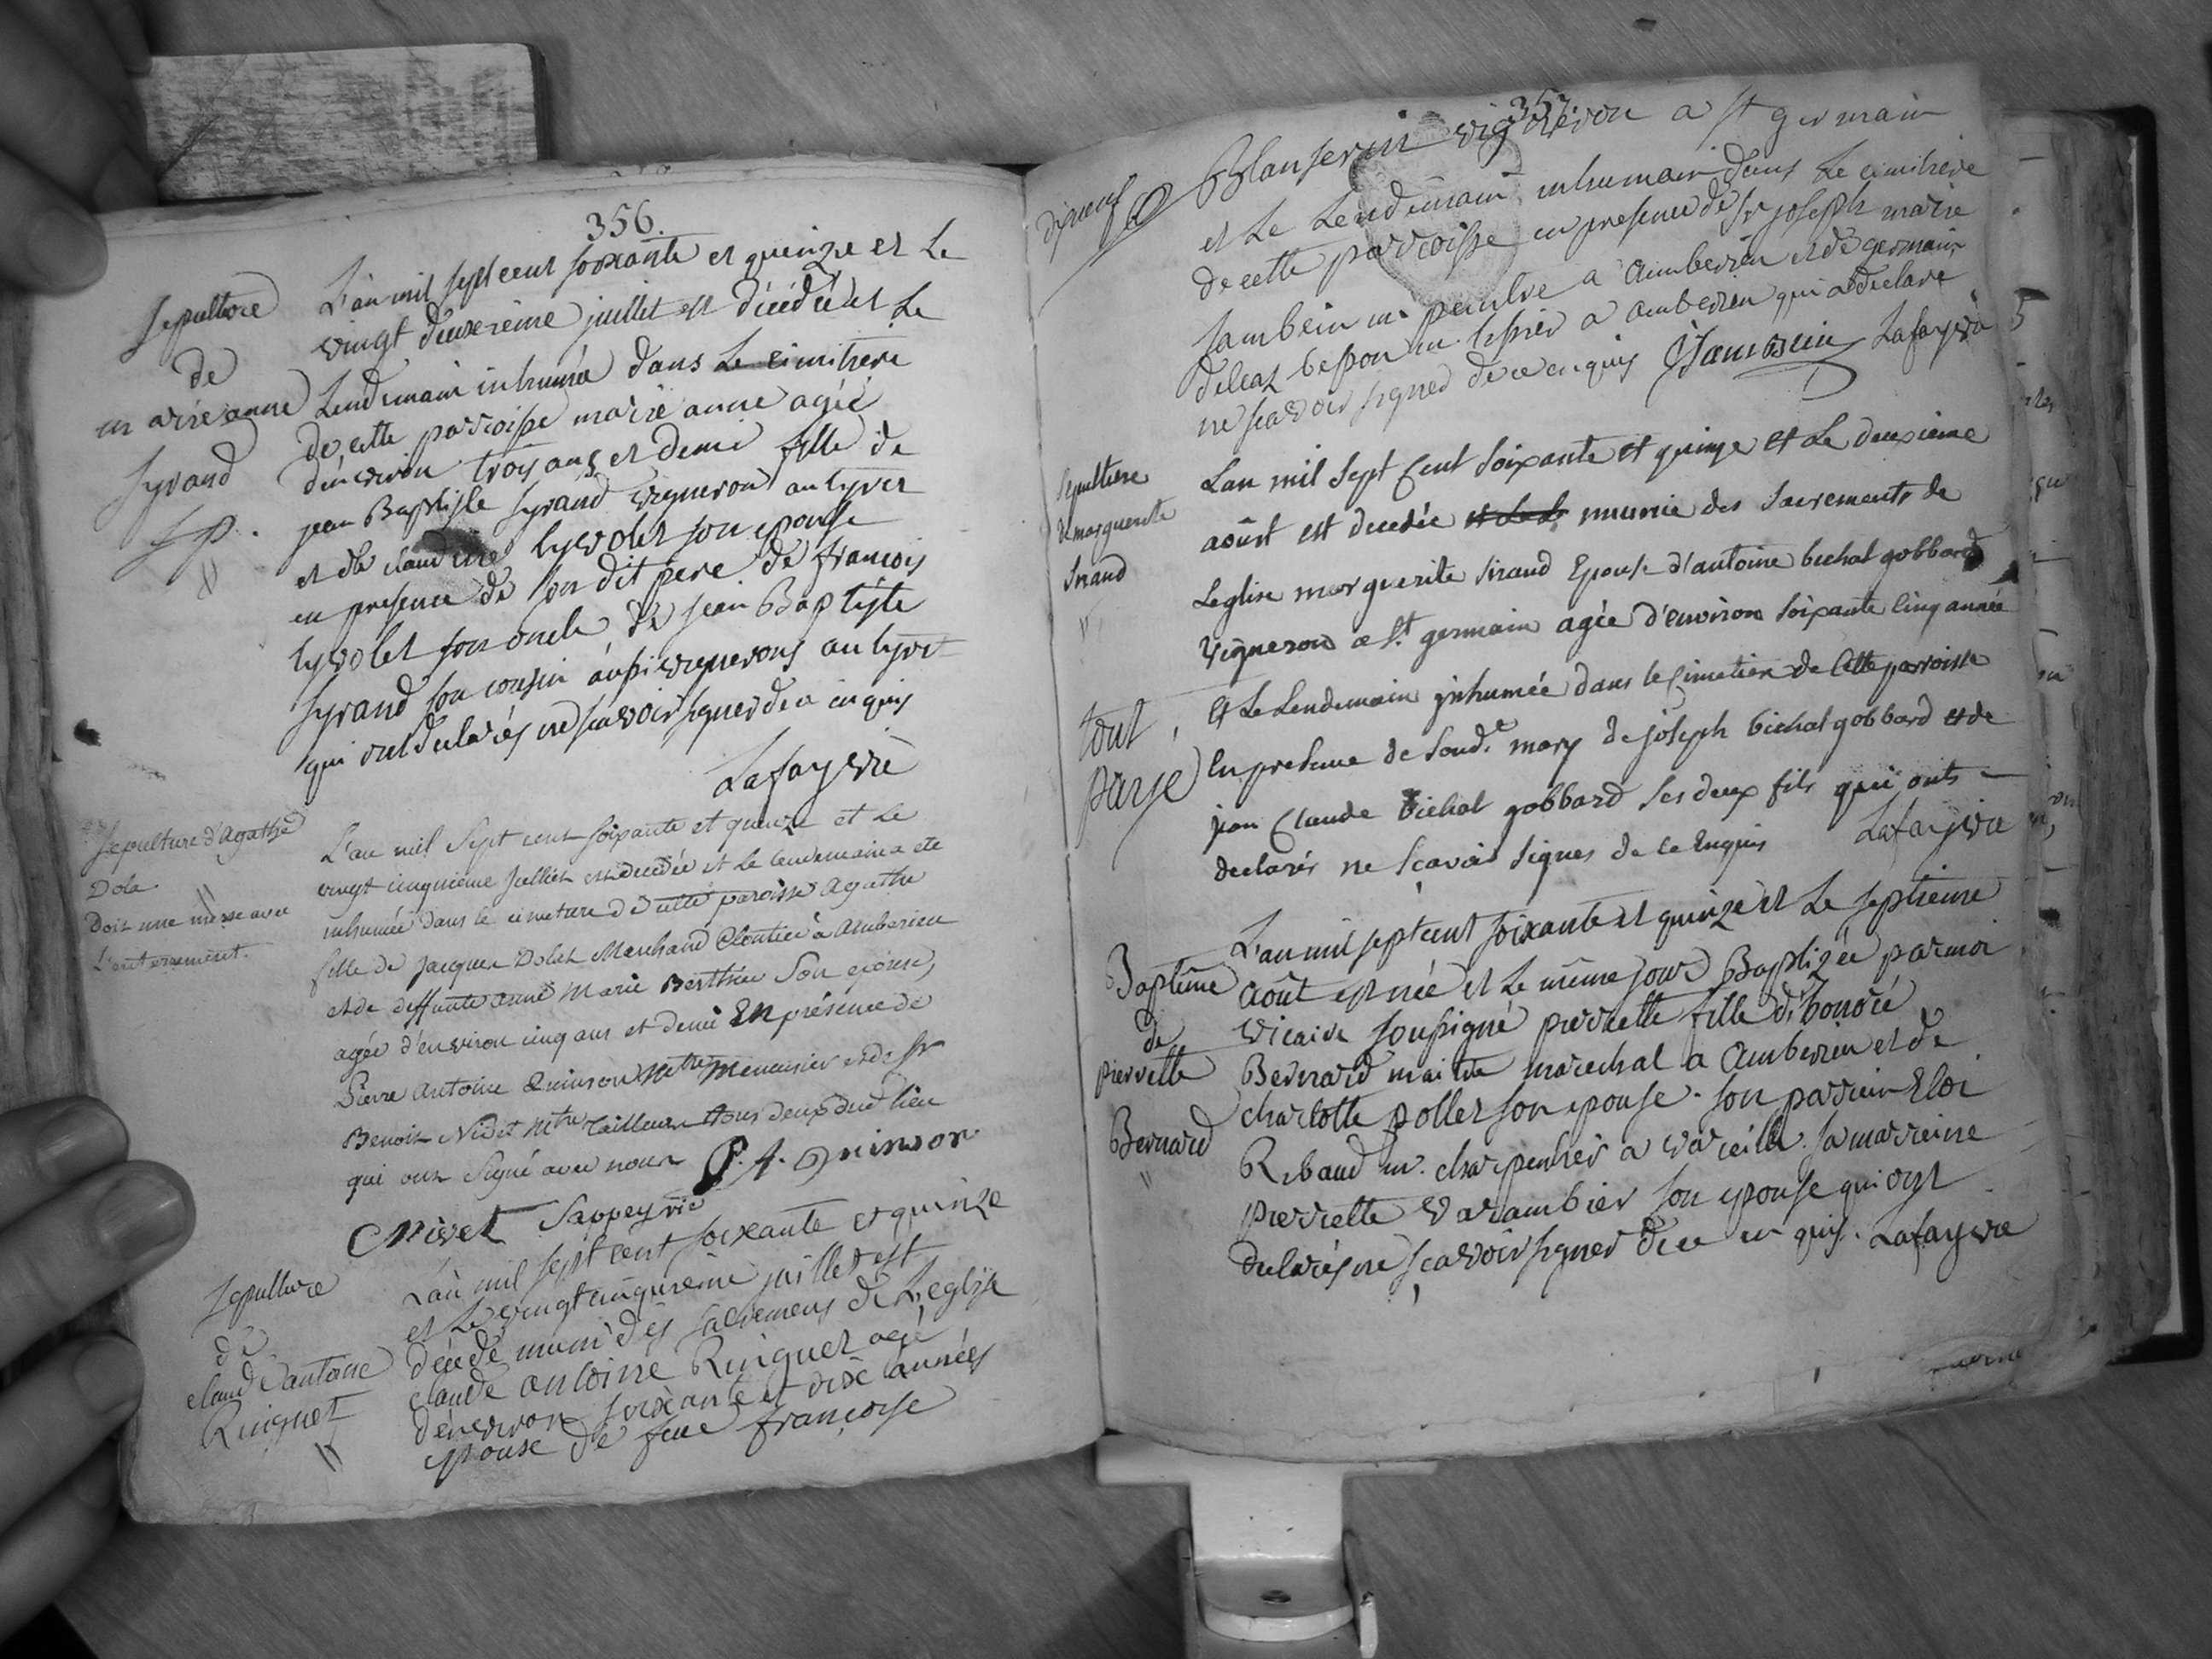 356.
Sepulture
de
marie anne
Syrand
L'an mil sept cent soixante et quinze et Le
vingt deuxieme juillet est décédée et Le
Lendemain inhumée dans Le cimitiere
de cette parroisse marie anne agée
denviron trois ans et demi fille de
jean Baptiste Syrand vigneron au tyret
et de claudine lyvolet son epouse
en presence de son dit pere de françois
lyvolet son oncle de jean Baptiste
Syrand son cousin aussi vignerons au tyret
qui ont declarés ne scavoir signer de ce enquis
Lafayvre
Sepulture d'agathe
Dola
Doit une messe avec
L'enterrement.
L'an mil Sept cent soixante et quinze et Le
vingt cinquieme Juillet est decedée et Le lendemain a eté
inhumée dans le cimetiere de cette paroisse Agathe
fille de jacques Dolat Marchand Cloutier à Amberieu
et de deffunte anne Marie Berthier Son epouse,
agée d'environ cinq ans et demi En présence de
Pierre Antoine Quinson Mtre Menuisier et de Sr
Benoit Nivet Mtre Tailleur tous deux dud lieu
qui ont signé avec nous P. A. Quinson
Nivet Sappeyvre
Sepulture
de
claude antoine
Ringuet
L'an mil sept cent soixante et quinze
et Le vingt cinquieme juillet est
décédé muni des sacremens de L'eglise
claude antoine Ringuet agé
d'environ soixante et dix années
epoux de feue françoise
357
Blanserin vigneron a st germain
et Le Lendemain inhumain dans Le cimitiere
de cette parroisse en presence de sr joseph marie
Jambein m. peintre a amberieu et de germain
delcaz bepon m. a amberieu qui a declare
ne scavoir signer de ce enquis Jambein Lafayvre
Sepulture
de marguerite
Sirand
Lan mil Sept Cent Soixante et quinze et Le deuxième
aoust est decedée et Le munie des Sacrements de
Leglise marguerite Sirand Epouse d'antoine bichat gobbard
Vigneron a St germain agée d'environ Soixante Cinq année
et Le Lendemain inhumée dans le cimetiere de Cette parroisse
tout
paye
En presence de Soud.e mary de joseph bichat gobbard et de
jean Claude bichat gobbard Ses deux fils qui onts
declarés ne Scavoir Signer de ce Enquis Lafayvre
Baptême
de
pierrette
Bernard
L'an mil sept cent soixante et quinze et Le septieme
août est née et Le même jour Baptizée par moi
vicaire soussigné pierrette fille d'honoré
Bernard maitre marechal a amberieu et de
charlotte pollet son epouse. son parrain Eloi
Ribaud m. charpentier a vareille. sa marreine
pierrette varambier son epouse qui ont
declarés ne scavoir signer de ce enquis. Lafayvre